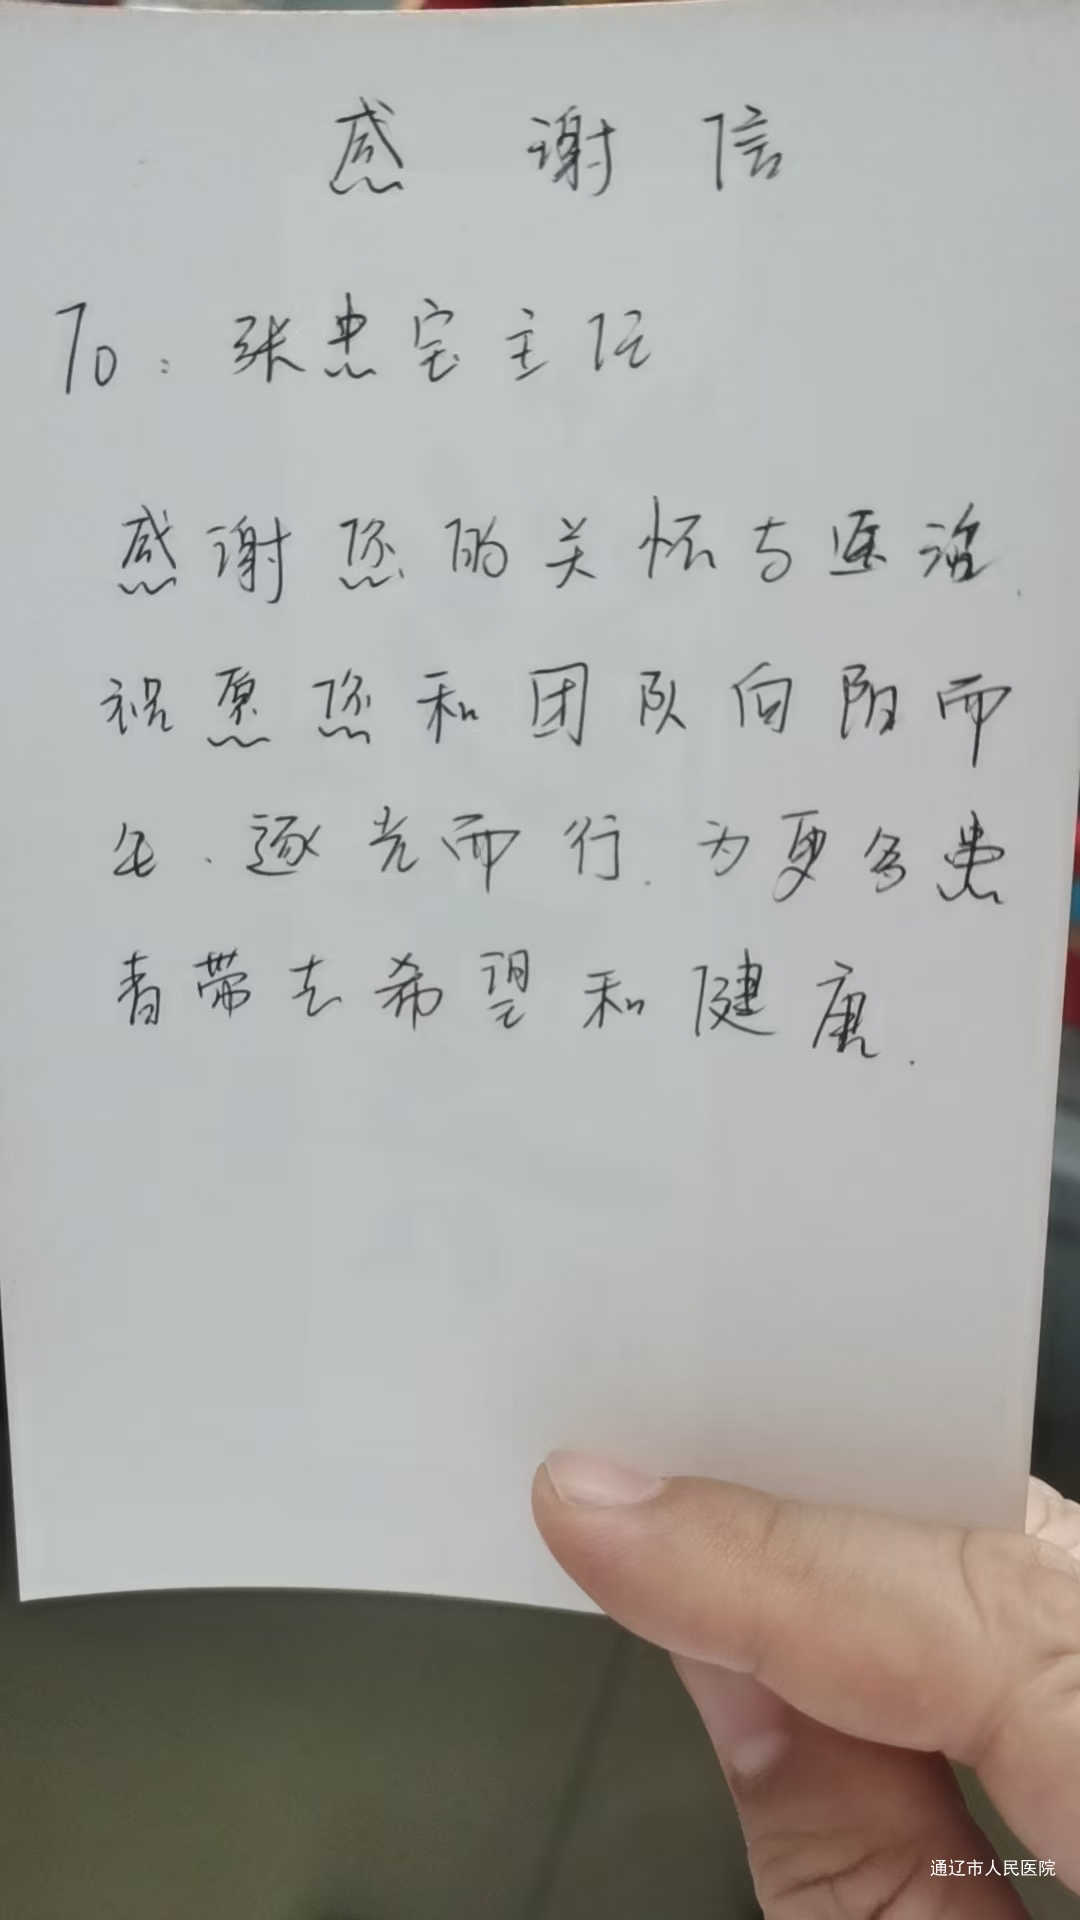 感谢信
To：张忠宝主任
感谢您的关怀与医治.
祝愿您和团队向阳而
生.逐光而行.为更多患
者带去希望和健康.
通辽市人民医院